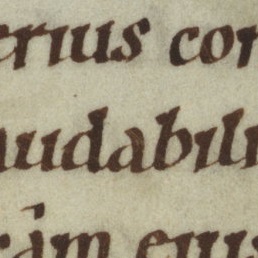 erius con
audabili
ram eius